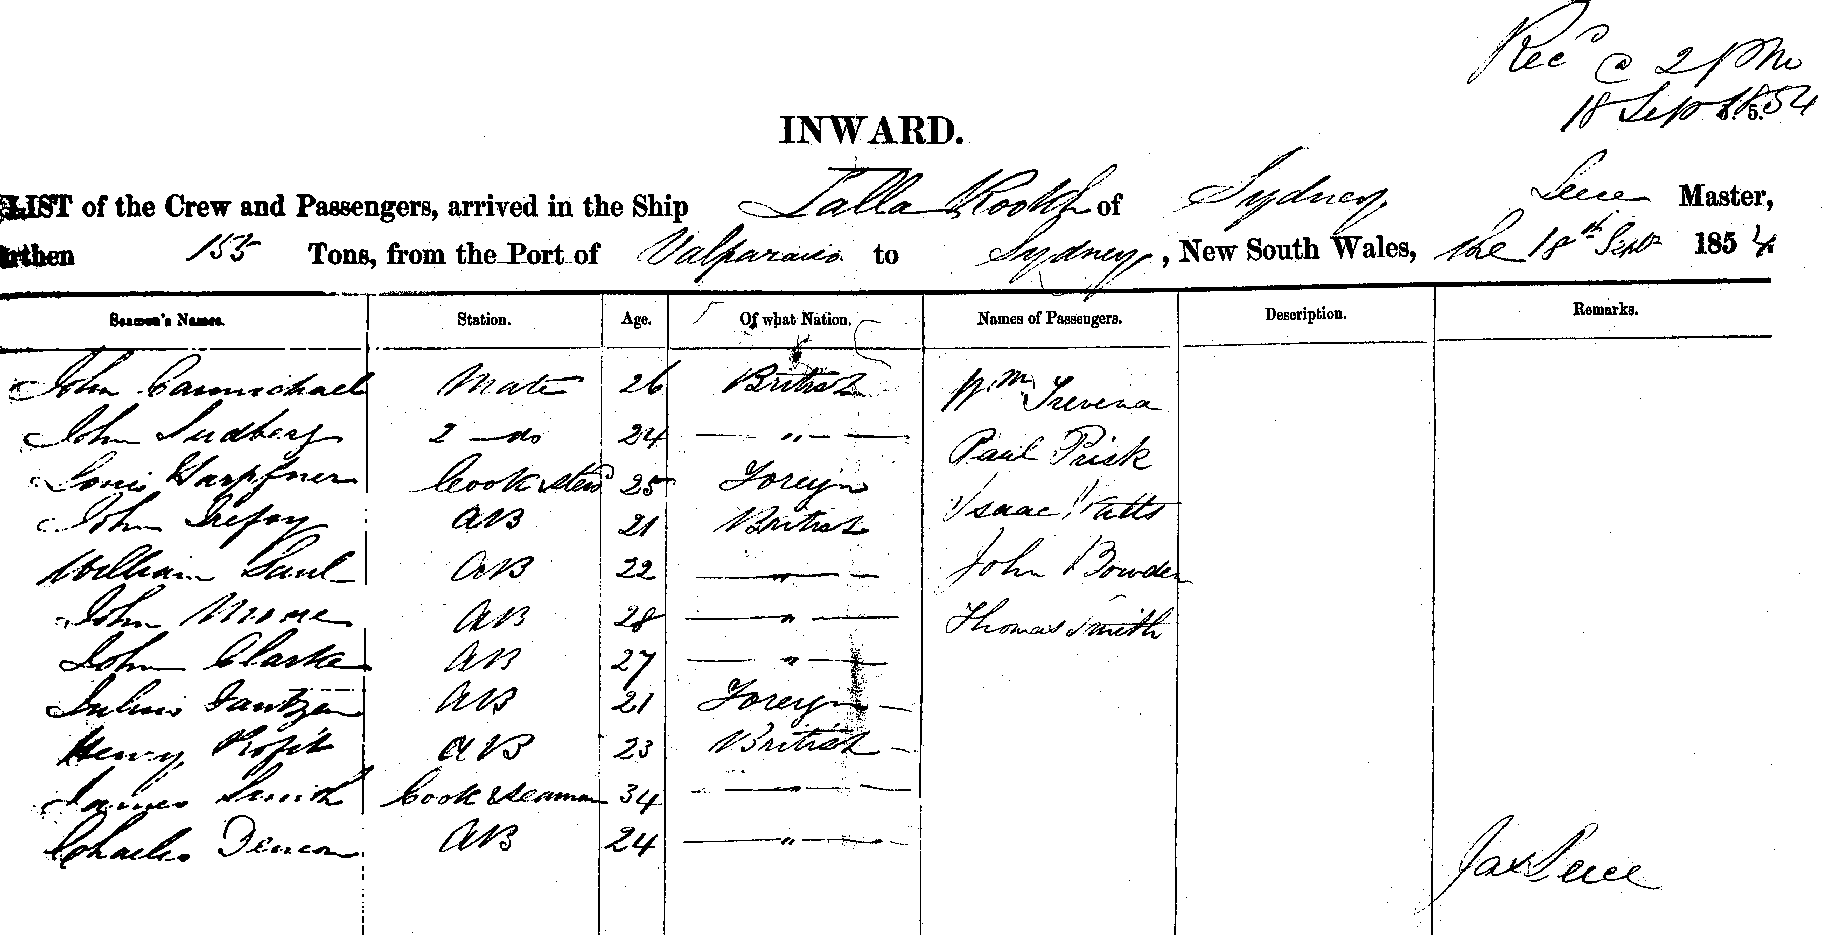 Recd @ 2 PM
18 Sept 1854
INWARD.
LIST of the Crew and Passengers, arrived in the Ship Lalla Rookh of Sydney Master,
rthen 155 Tons, from the Port of Valparaiso to Sydney, New South Wales, the 18th Sept 1854
Seamen's Names. Station. Age. Of what Nation. Names of Passengers. Description. Remarks.
John Carmichael Mate 26 British Wm Trevena
John 2 do 24 — " —
Paul Prisk
Louis Cook & Stewd 25 Foreign
John AB 21 British Isaac Watts
William Saul AB 22 — " — John Bowden
John Moore AB 28 — " — Thomas Smith
John Clarke AB 27 — " —
Julius Jantzen AB 21 Foreign —
Henry Profit AB 23 British —
James Smith Cook & Seaman 34 — " —
Charles AB 24 — " —
Jas